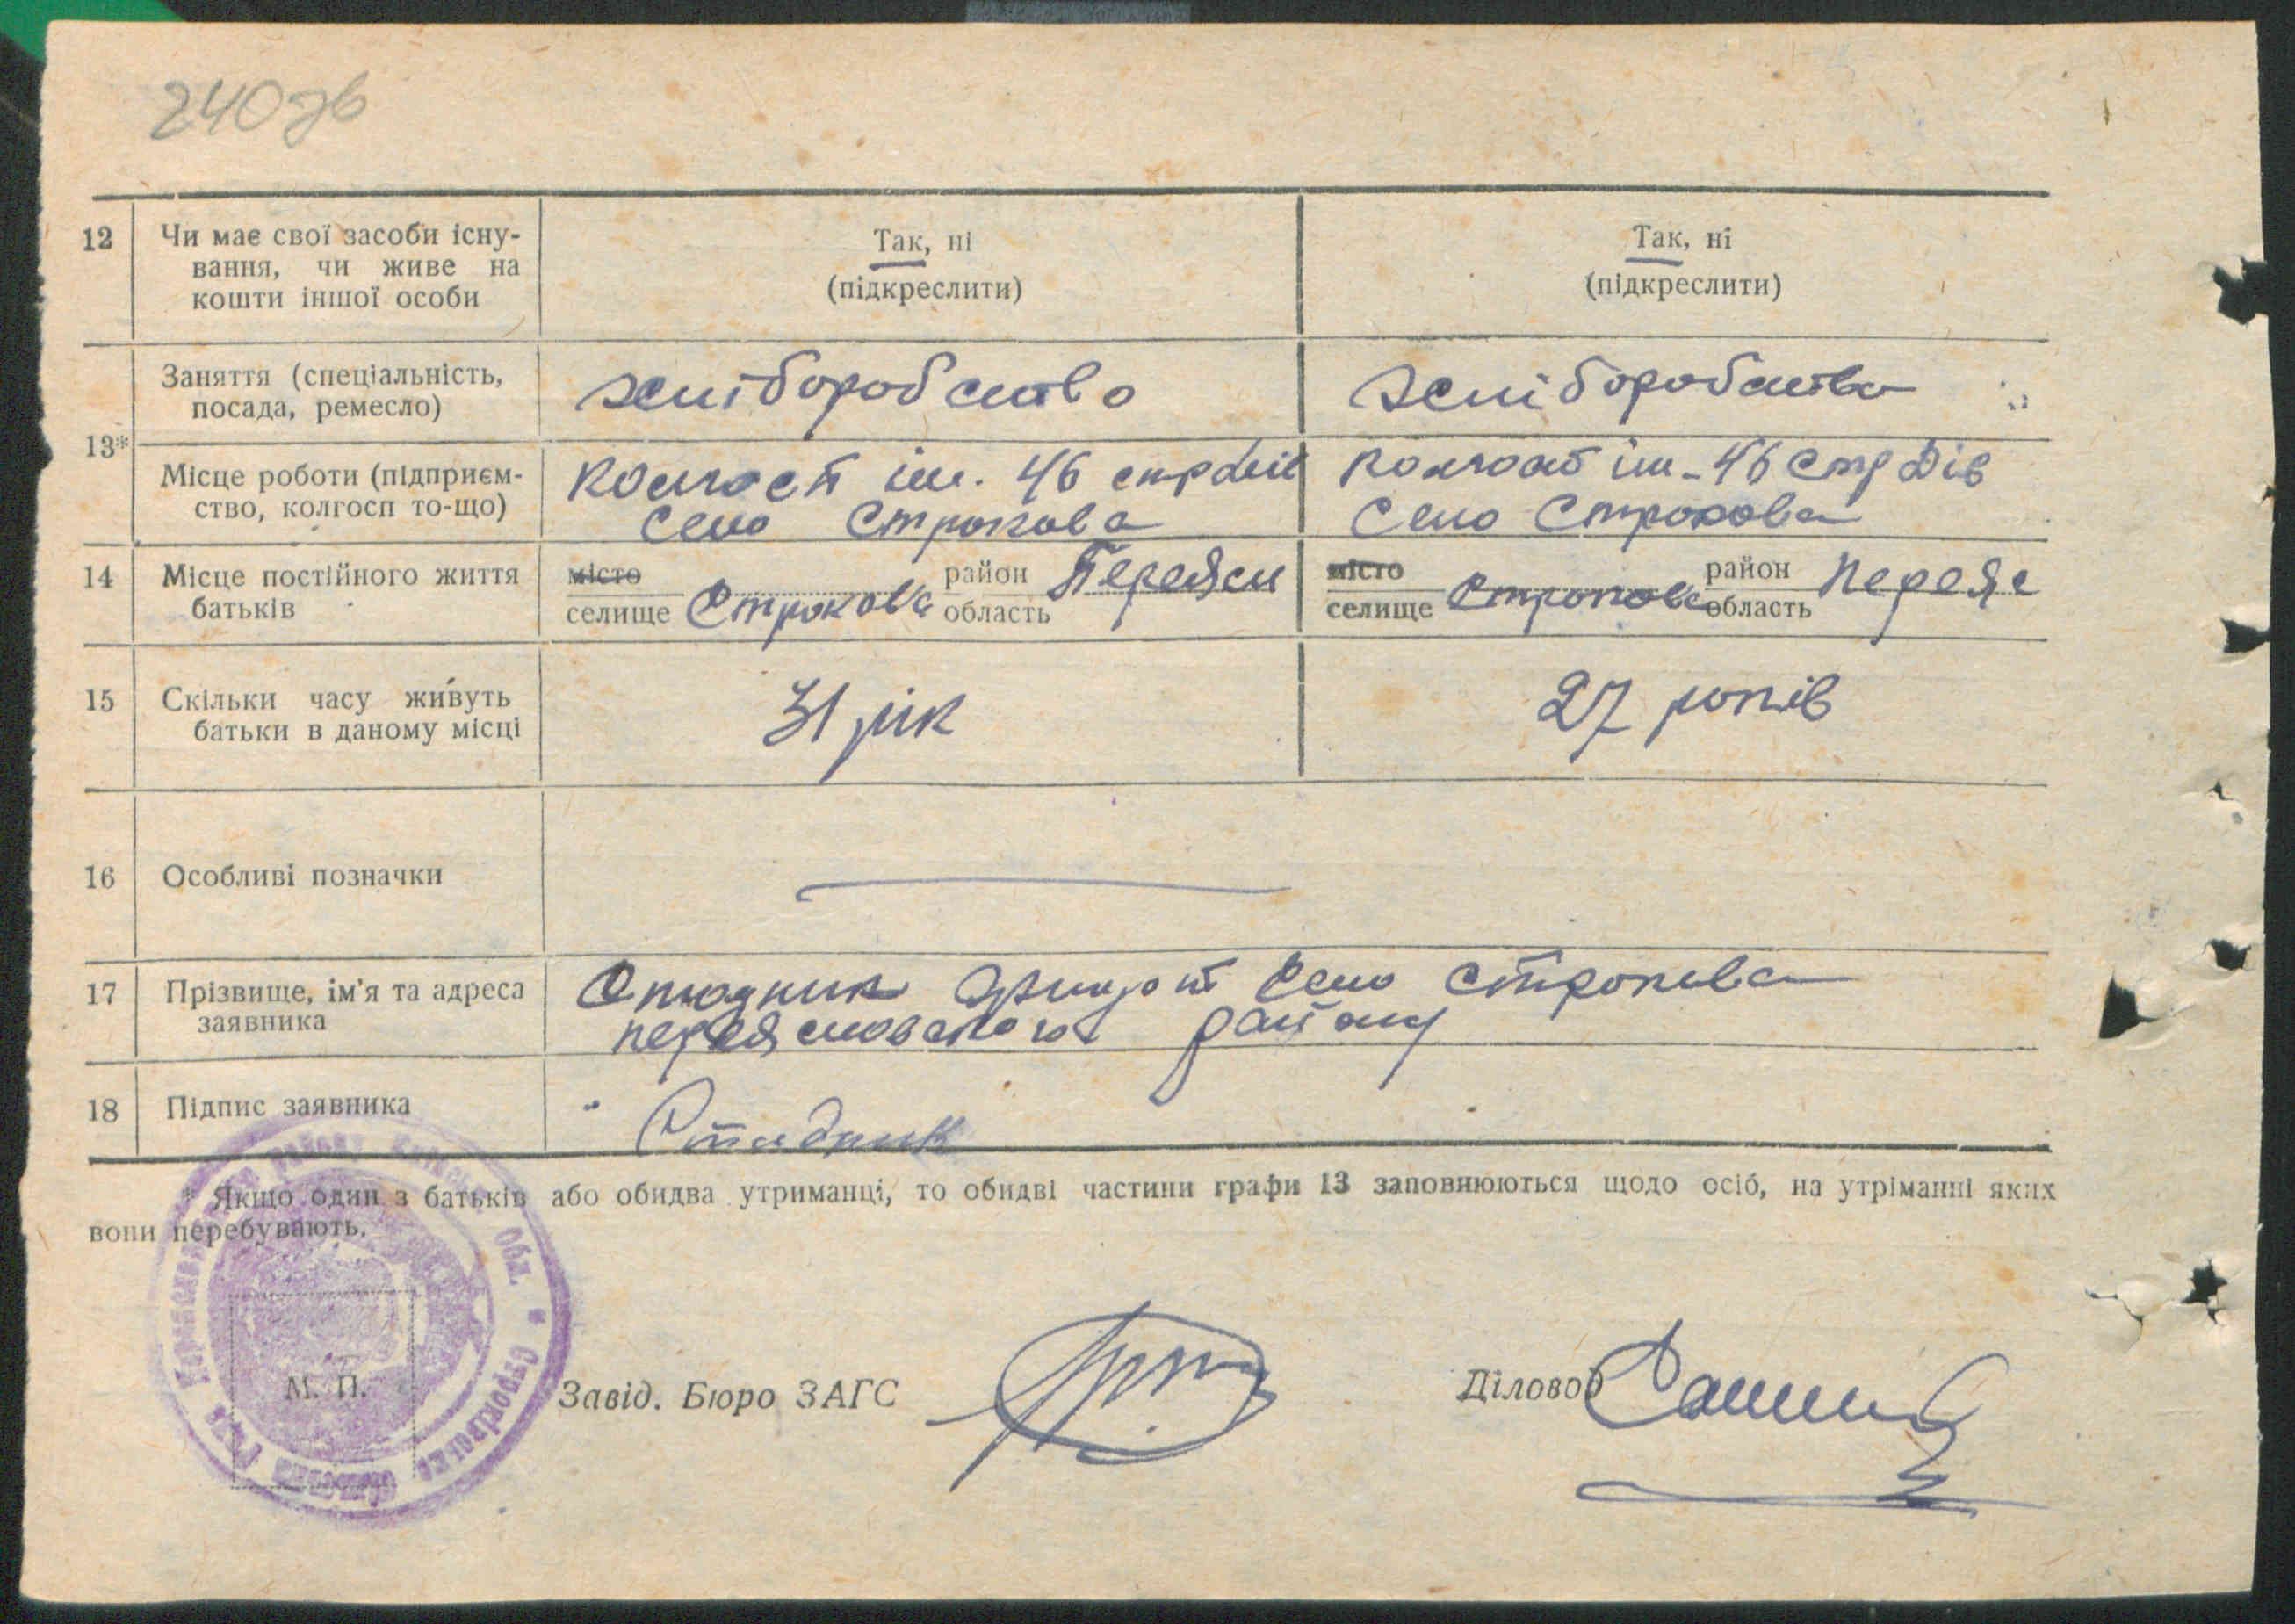 240 зв
12 Чи має свої засоби існу-
вання, чи живе на
кошти іншої особи
Так, ні
(підкреслити)
Так, ні
(підкреслити)
13*
Заняття (спеціальність,
посада, ремесло)
хліборобство
хліборобство
Місце роботи (підприєм-
ство, колгосп то-що)
Колгосп ім. 46 стр Див
Село Строкова
Колгосп ім. 46 Стр Див
Село Строкова
14 Місце постійного життя
батьків
місто
селище Строкова
район
область Переясл
місто
селище Строкова
район
область Переяс
15 Скільки часу живуть
батьки в даному місці
31 рік
27 років
16 Особливі позначки
17 Прізвище, ім'я та адреса
заявника
село Строкова
переяславського району
18 Підпис заявника
* Якщо один з батьків або обидва утриманці, то обидві частини графи 13 заповнюються щодо осіб, на утріманні яких
вони перебувають.
М. П.
Завід. Бюро ЗАГС
Діловод